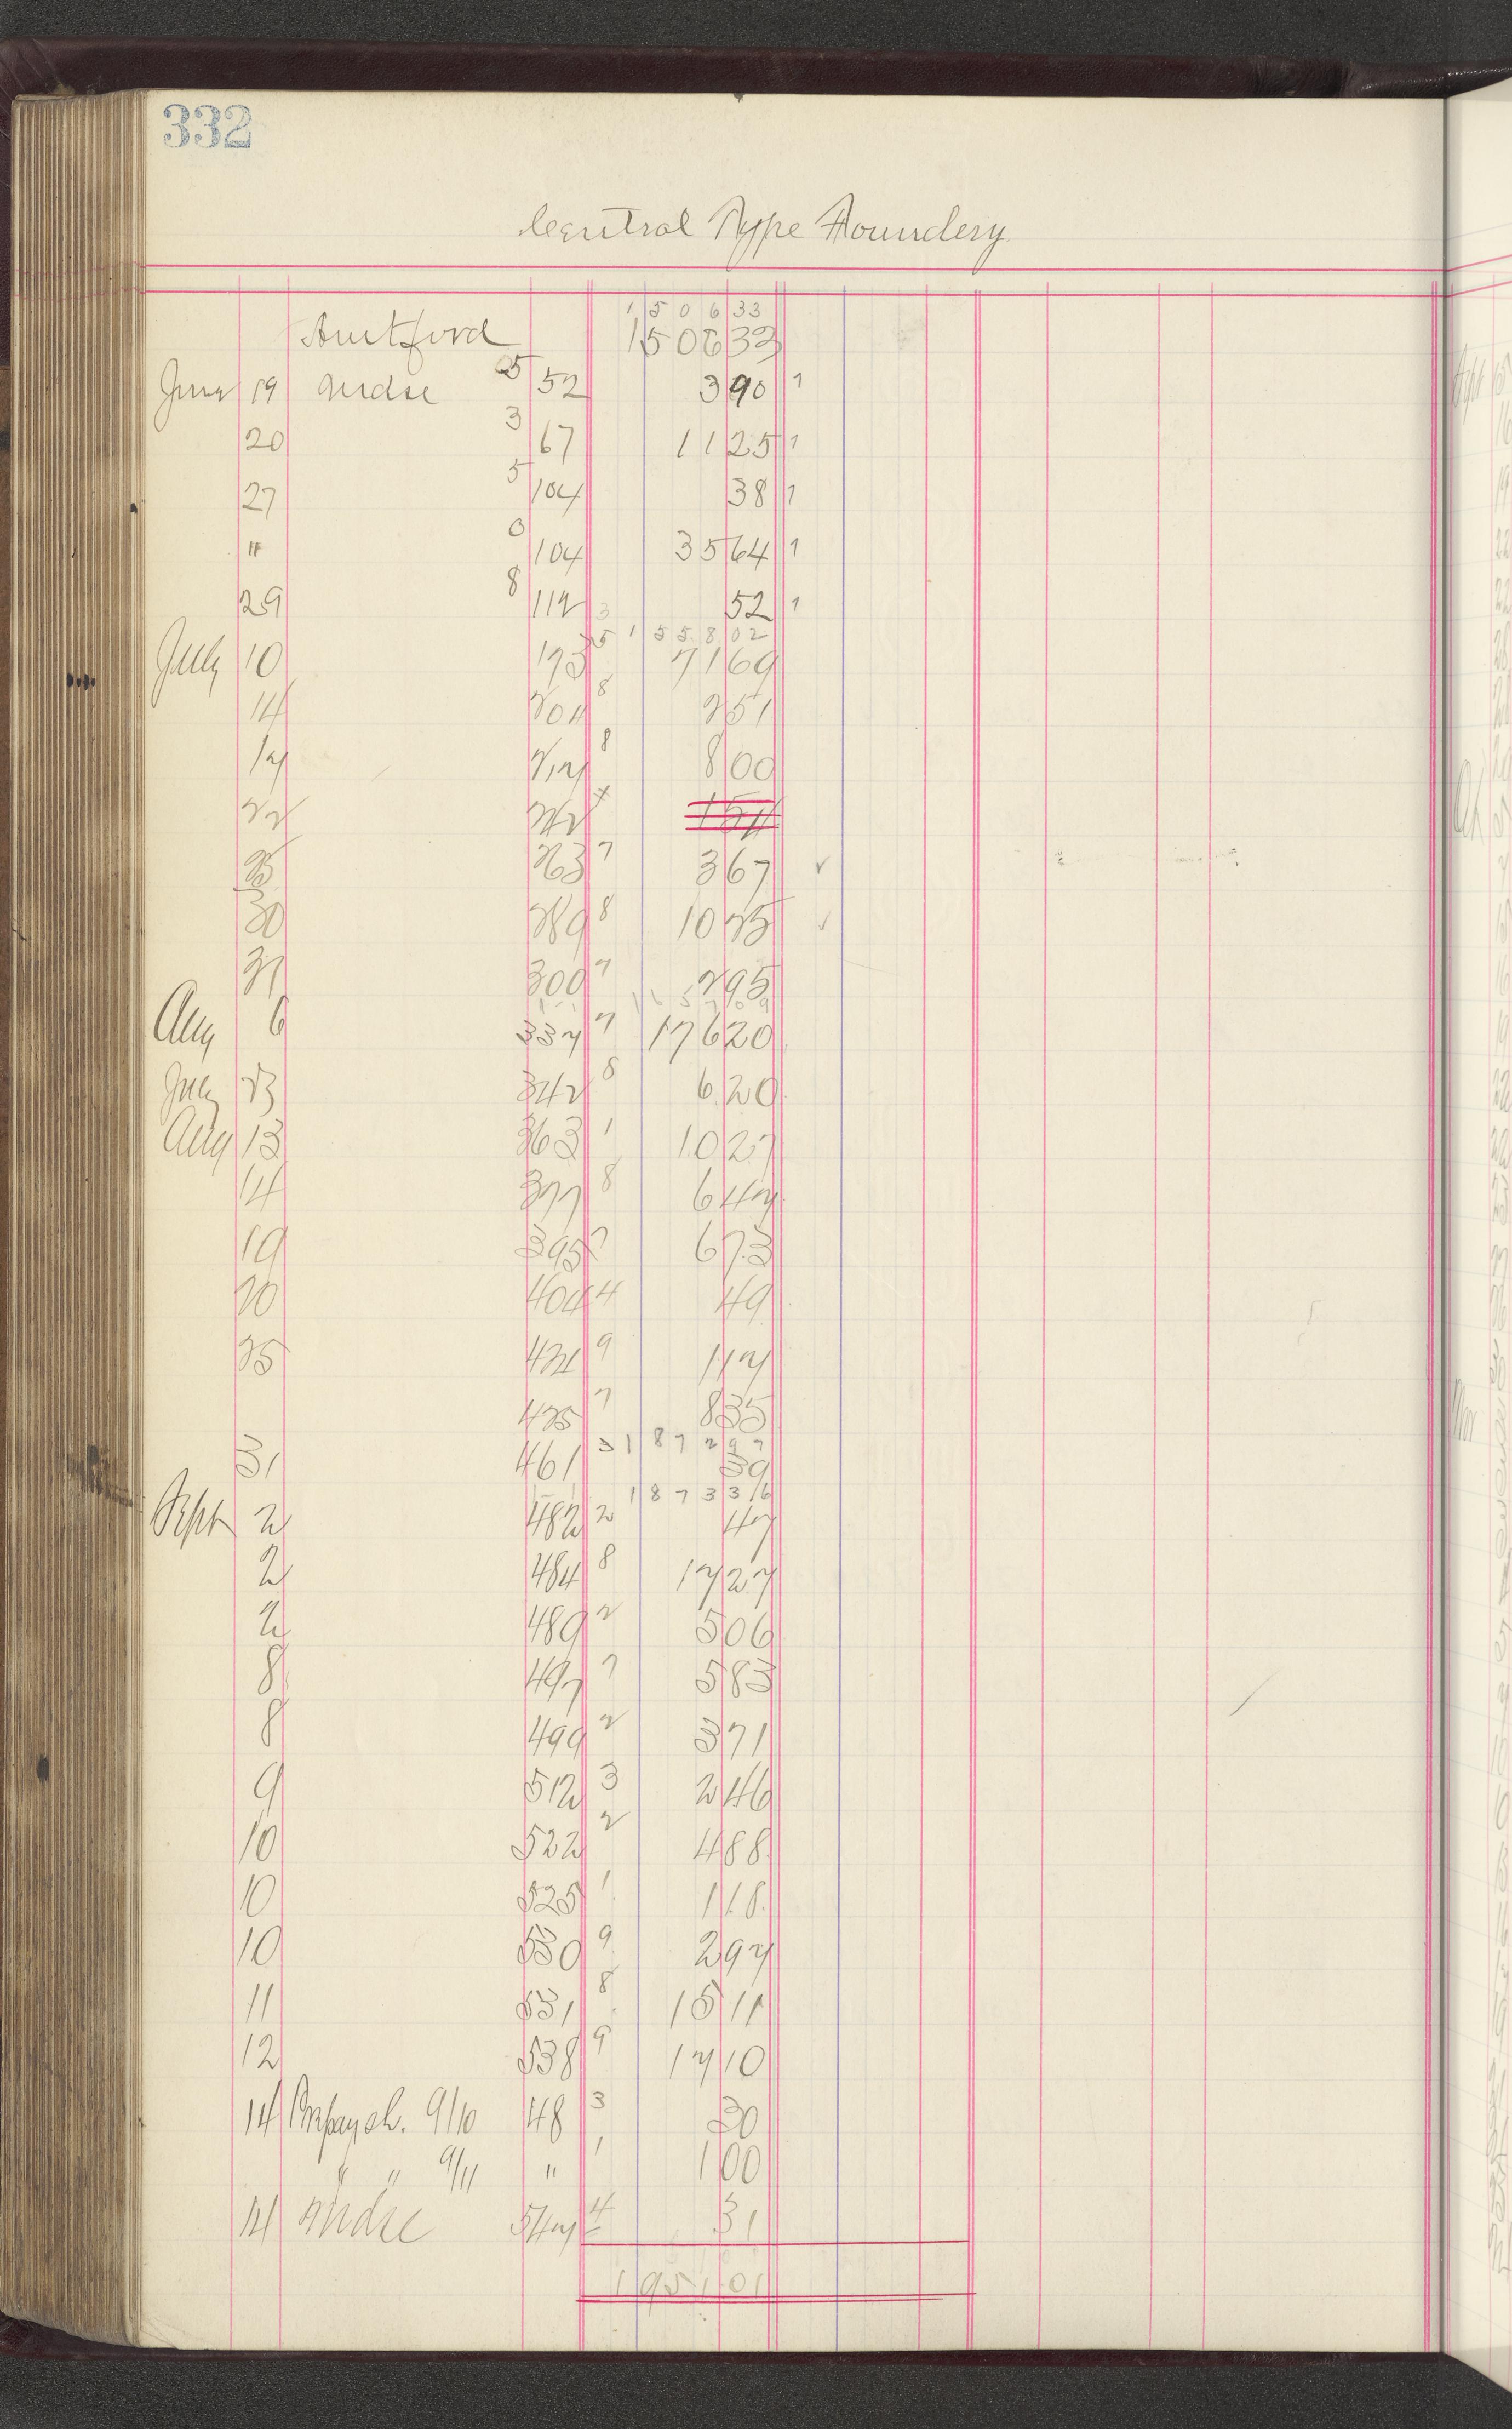 332
Central Type Foundery
1 5 0 6 33
Amt ford 1506 33
June 19 Mdse 5 52 3 90 1
20 3 67 11 25 1
27 5 104 38 1
" 0 104 35 64 1
29 8 112 52 1
1 5 5 8 02
July 10 173 5 71 69
14 204 8 2 51
17 217 8 8 00
22 242
25 263 7 3 67 ✓
30 289 8 10 25 ✓
31 300 7 2 95
Aug 6 337 7 176 20
July 23 342 8 6 20
Aug 13 363 1 10 27
14 377 8 6 47
19 395 7 6 73
20 404 4 49
25 421 9 1 17
425 7 8 35
1 8 7 2 97
31 461 3 39
1 8 7 3 36
Sept 2 482 2 47
2 484 8 17 27
2 489 2 5 06
8 497 7 5 83
8 499 2 3 71
9 512 3 2 46
10 522 2 4 88
10 525 1 1 18
10 530 9 2 97
11 531 8 15 11
12 538 9 17 10
14 Prepay ch. 9/10 48 3 30
" " 9/11 " 1 1 00
14 Mdse 547 4 31
1951 01